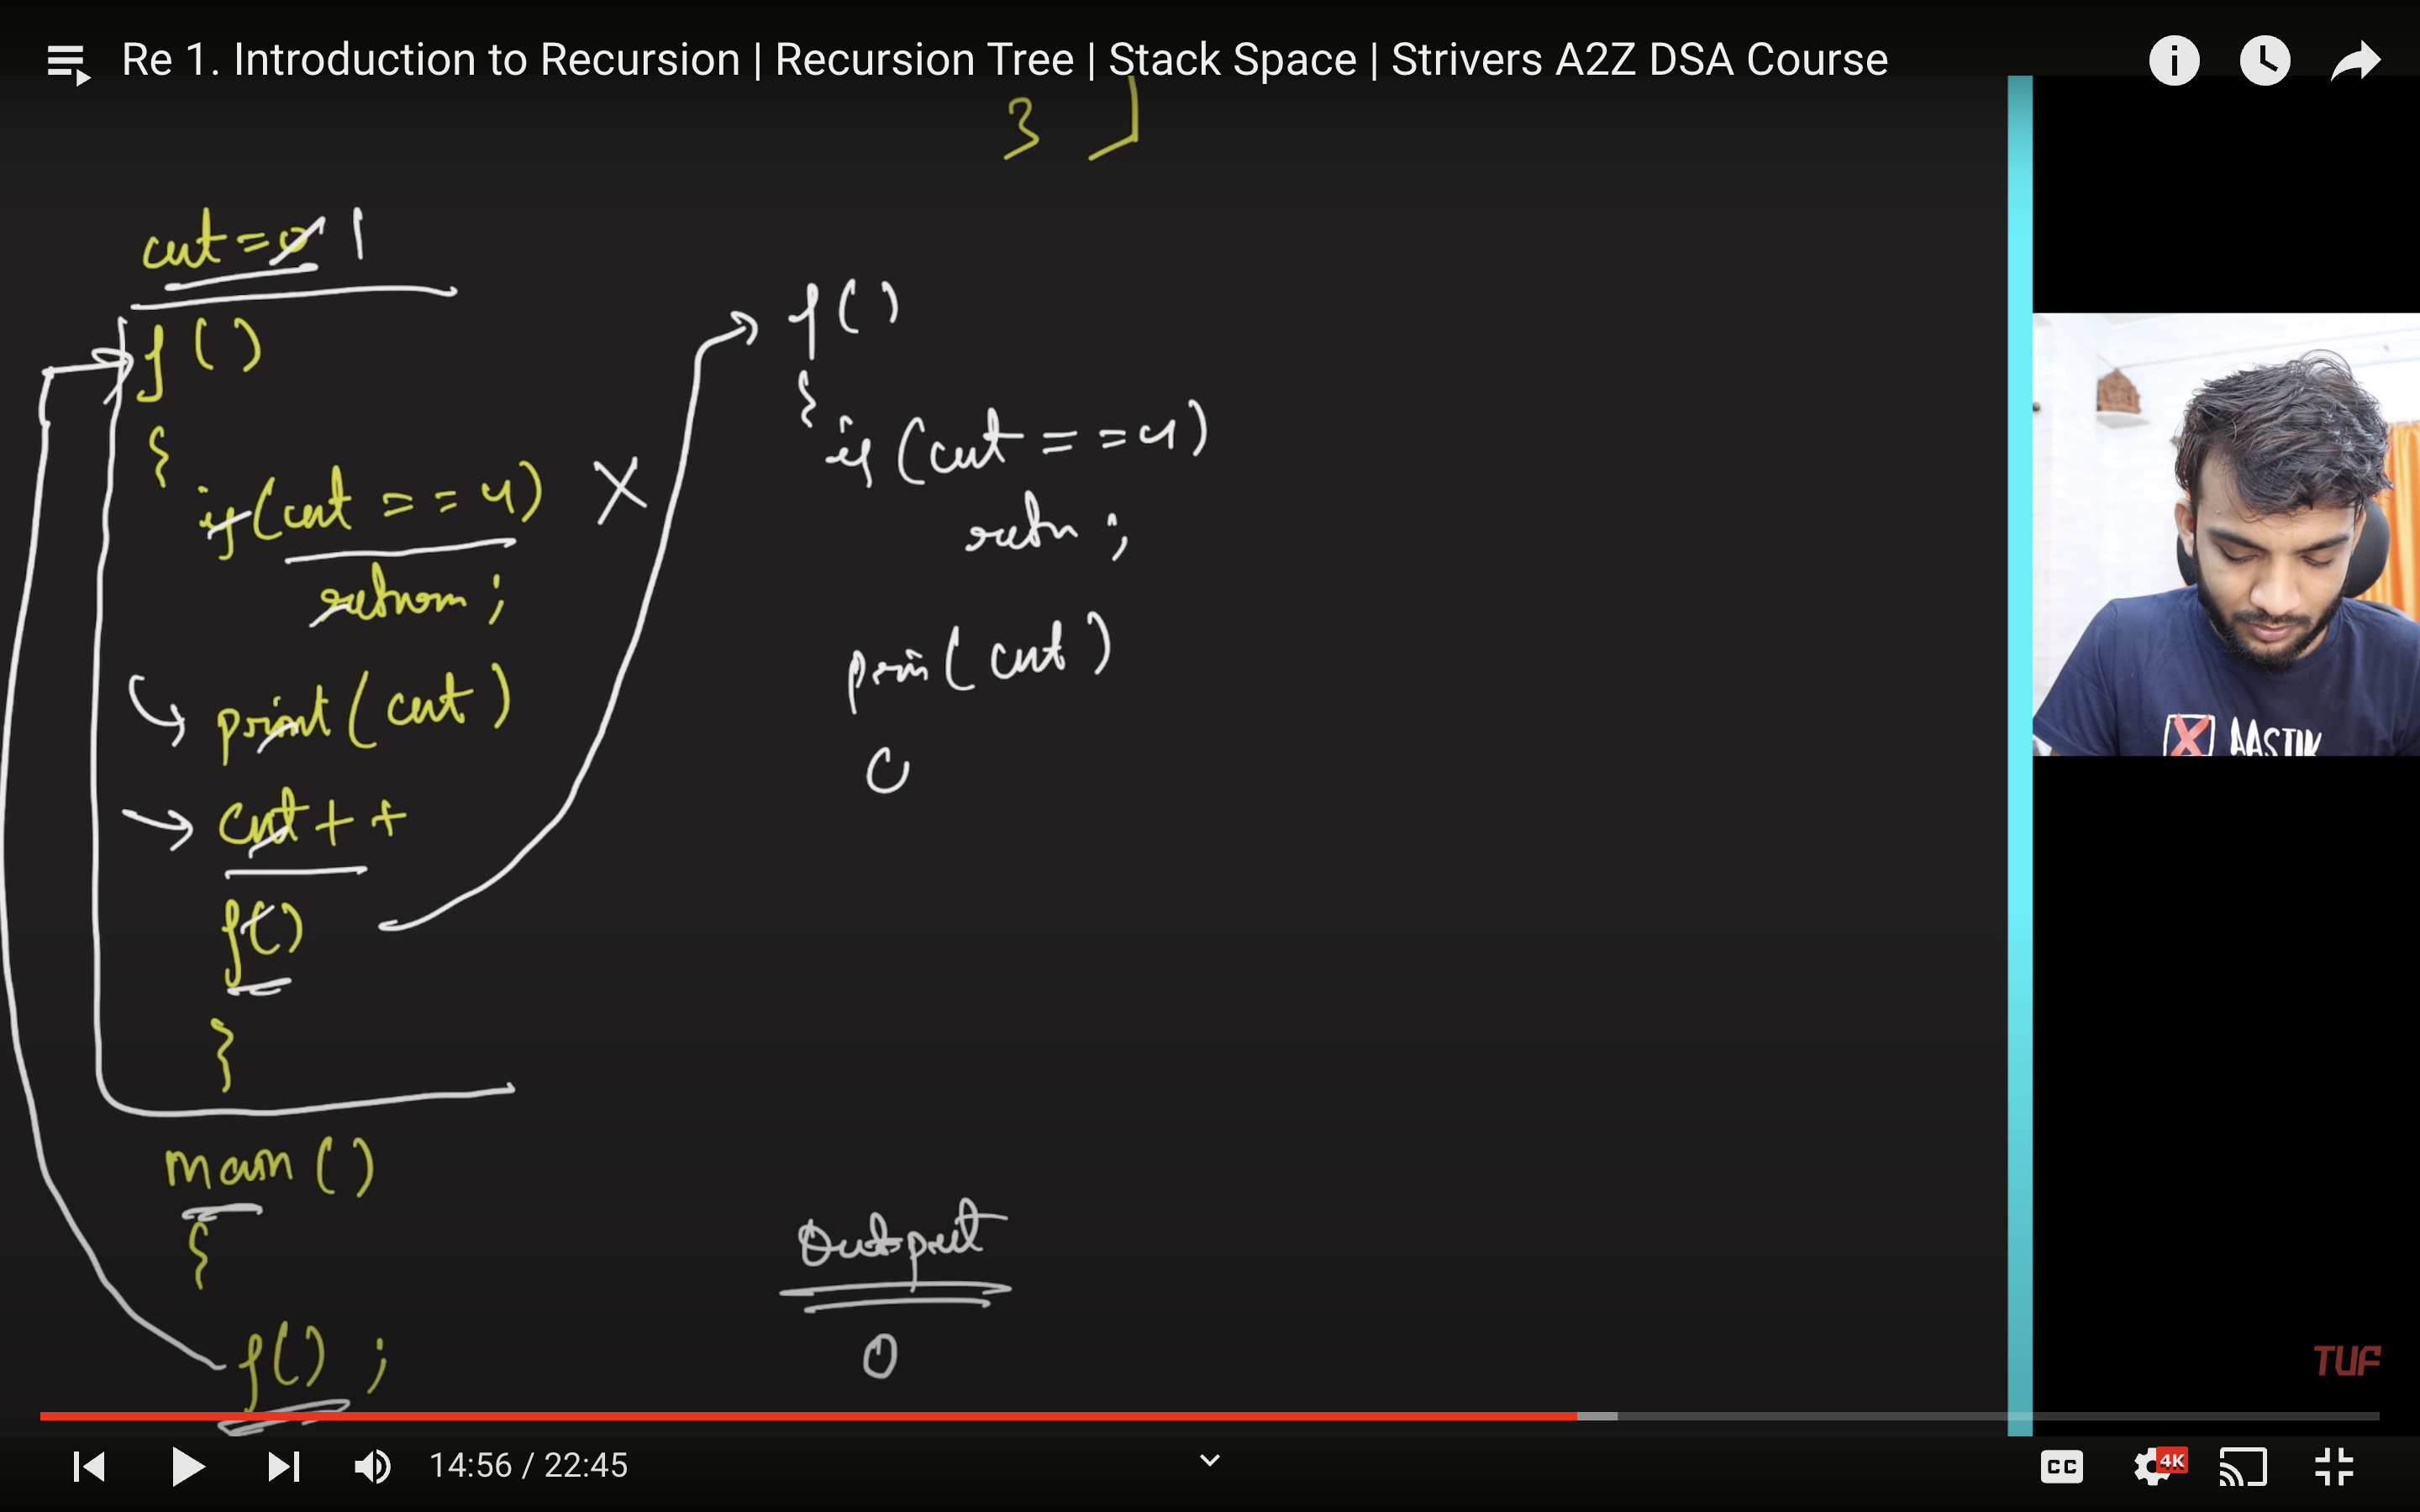 Re 1. Introduction to Recursion | Recursion Tree | Stack Space | Strivers A2Z DSA Course
3
cnt = 0 1
f ( )
{
if (cnt = = 4) X
return ;
print ( cnt )
cnt + +
f()
}
main ( )
{
f() ;
f ( )
{
if (cnt = = 4)
retn ;
prin ( cnt )
C
Output
0
AASTIK
TUF
14:56 / 22:45
CC
4K